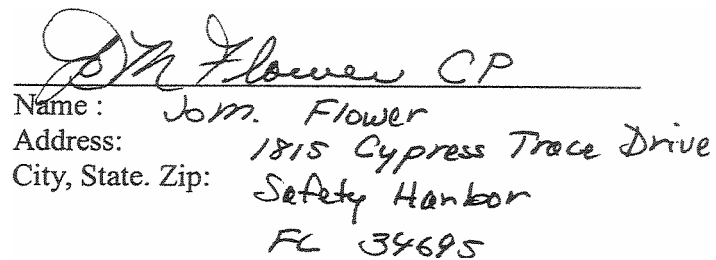 Jo M Flower CP
Name : Jo M. Flower
Address: 1815 Cypress Trace Drive
City, State. Zip: Safety Harbor
FL 34695